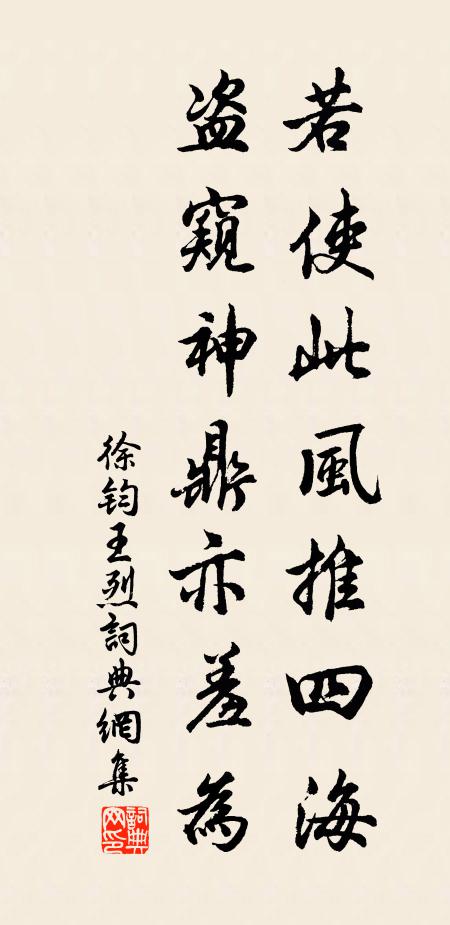 若使此風推四海
盗窺神鼎亦羞為
徐鈞王烈詞典網集
詞典網印